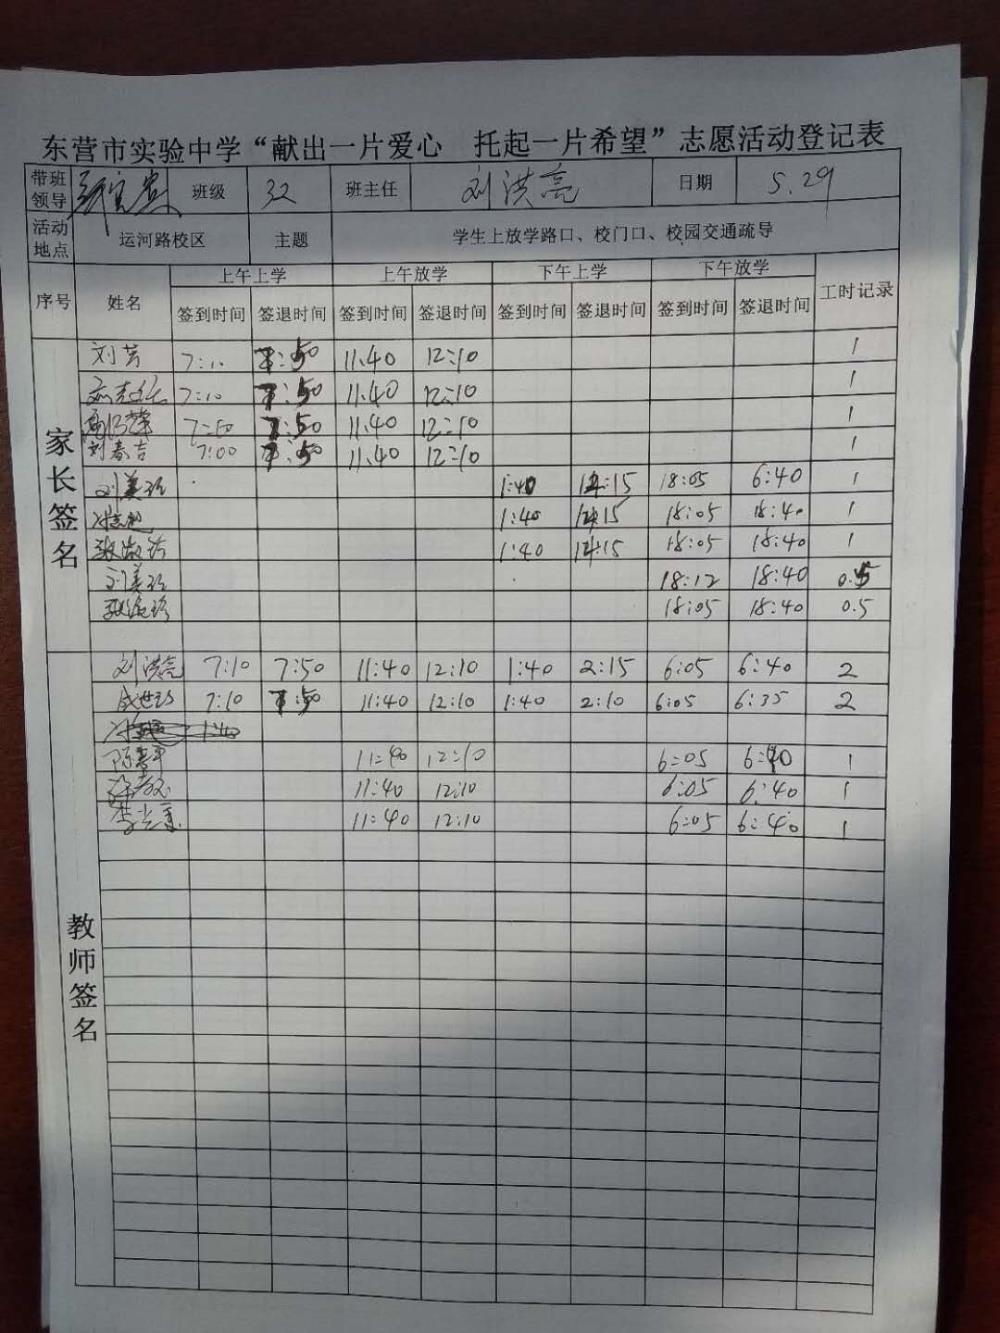 东营市实验中学“献出一片爱心 托起一片希望”志愿活动登记表
带班领导 班级 32 班主任 刘洪亮 日期 5.29
活动地点 运河路校区 主题 学生上放学路口、校门口、校园交通疏导
序号 姓名 上午上学 上午放学 下午上学 下午放学 工时记录
签到时间 签退时间 签到时间 签退时间 签到时间 签退时间 签到时间 签退时间
家长签名
刘芳 7:10 7:50 11:40 12:10 1
7:10 7:50 11:40 12:10 1
7:50 11:40 12:10 1
刘春吉 7:00 7:50 11:40 12:10 1
刘美玲 1:40 18:05 6:40 1
1:40 18:05 18:40 1
1:40 18:05 18:40 1
刘美玲 18:12 18:40 0.5
18:05 18:40 0.5
教师签名
刘洪亮 7:10 7:50 11:40 12:10 1:40 2:15 6:05 6:40 2
7:10 7:50 11:40 12:10 1:40 2:10 6:05 6:35 2
11:40 12:10 6:05 6:40 1
11:40 12:10 6:05 6:40 1
11:40 12:10 6:05 6:40 1